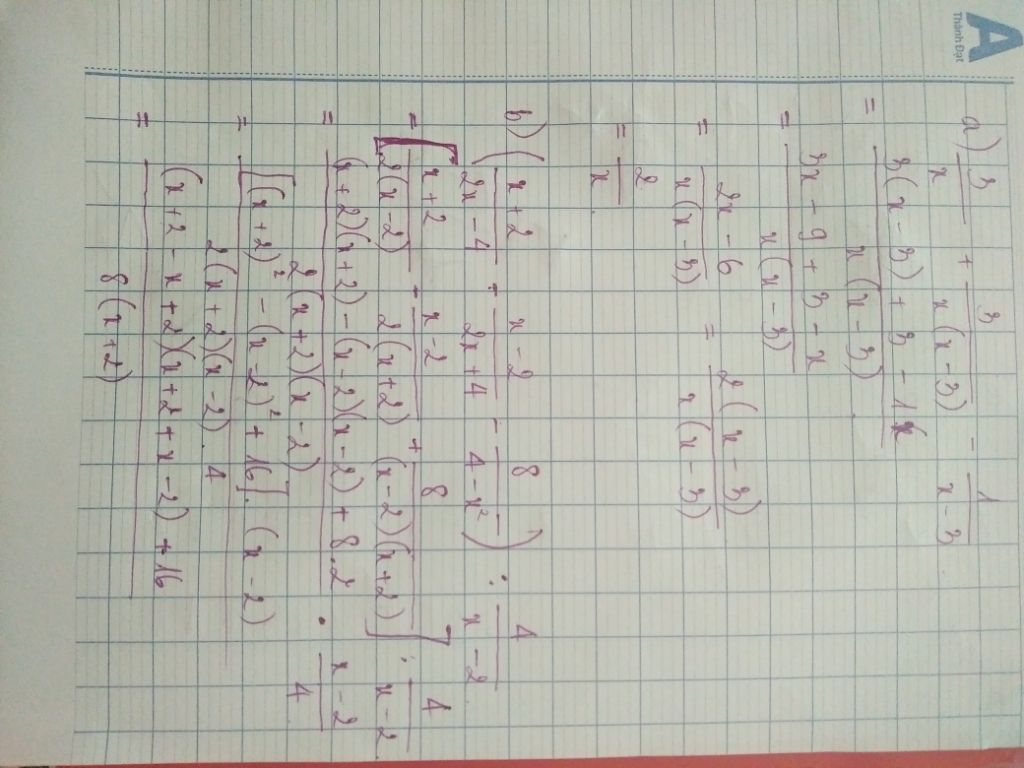 A
Thành Đạt
a) 3/x + 3/(x(x-3)) - 1/(x-3)
= (3(x-3) + 3 - 1x)/(x(x-3))
= (3x - 9 + 3 - x)/(x(x-3))
= (2x - 6)/(x(x-3)) = 2(x-3)/(x(x-3))
= 2/x
b) ((x+2)/(2x-4) - (x-2)/(2x+4) - 8/(4-x²)) : 4/(x-2)
= [(x+2)/(2(x-2)) - (x-2)/(2(x+2)) + 8/((x-2)(x+2))] : 4/(x-2)
= ((x+2)(x+2) - (x-2)(x-2) + 8.2)/(2(x+2)(x-2)) . (x-2)/4
= [(x+2)² - (x-2)² + 16].(x-2)/(2(x+2)(x-2).4)
= ((x+2-x+2)(x+2+x-2) + 16)/(8(x+2))